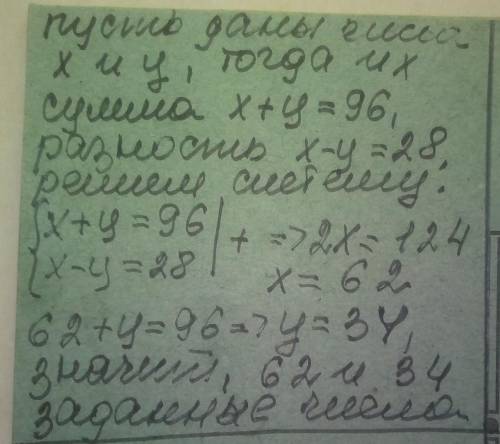 пусть даны числа
х и у, тогда их
сумма х+у=96,
разность х-у=28,
решим систему:
{х+у=96 | + => 2х=124
{х-у=28 | х=62
62+у=96=>у=34,
значит, 62 и 34
заданные числа.